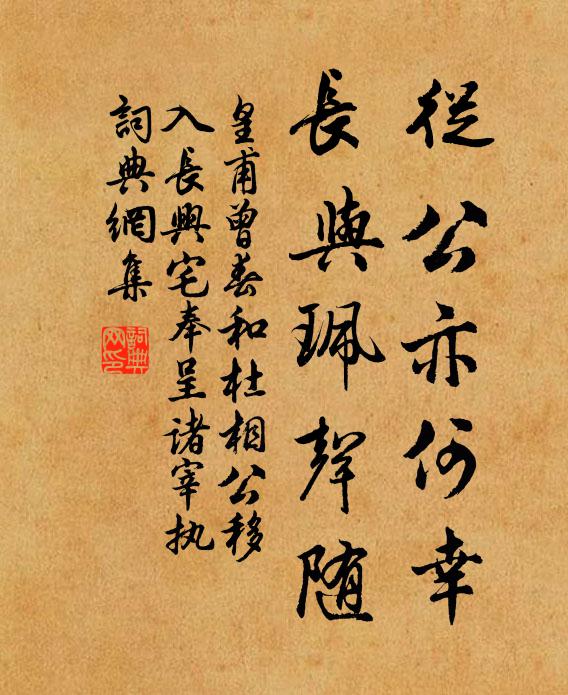 從公亦何幸
長與珮聲隨
皇甫曾奉和杜相公移
入長興宅奉呈諸宰执
詞典網集
詞典网印